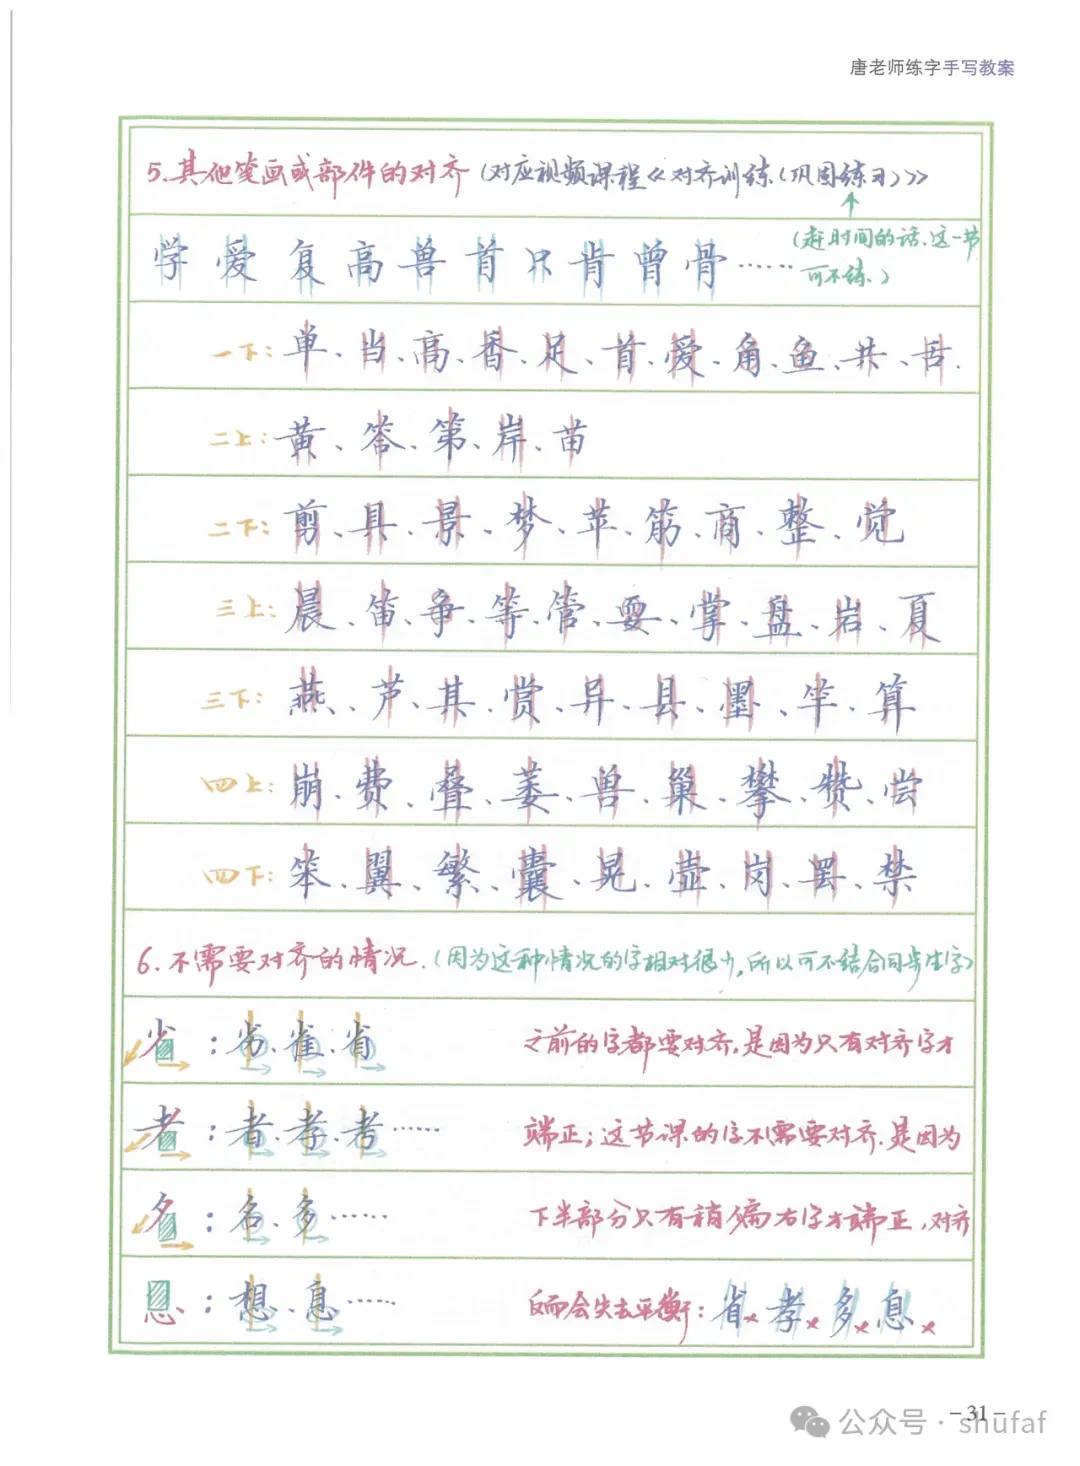 唐老师练字手写教案
5.其他笔画或部件的对齐(对应视频课程《对齐训练(巩固练习)》)
学 爱 复 高 兽 首 只 肯 曾 骨……
(赶时间的话,这一节
可不练、)
一下:单、当、高、香、足、首、爱、角、鱼、共、舌.
二上:黄、答、第、岸、苗
二下:剪、具、景、梦、苹、筋、商、整、觉
三上:晨、笛、争、等、管、要、掌、盘、岩、夏
三下:燕、芦、其、赏、异、县、墨、竿、算
四上:崩、费、叠、萎、兽、巢、攀、赞、尝
四下:笨、翼、繁、囊、晃、壶、岗、罢、禁
6.不需要对齐的情况.(因为这种情况的字相对很少,所以可不结合同步生字)
省:劣、雀、省 之前的字都要对齐,是因为只有对齐字才
者:者、孝、考…… 端正;这节课的字不需要对齐.是因为
名:名、多…… 下半部分只有稍偏右字才端正,对齐
息:想、息…… 反而会失去平衡:省×孝×多×息×
-31-
公众号·shufaf